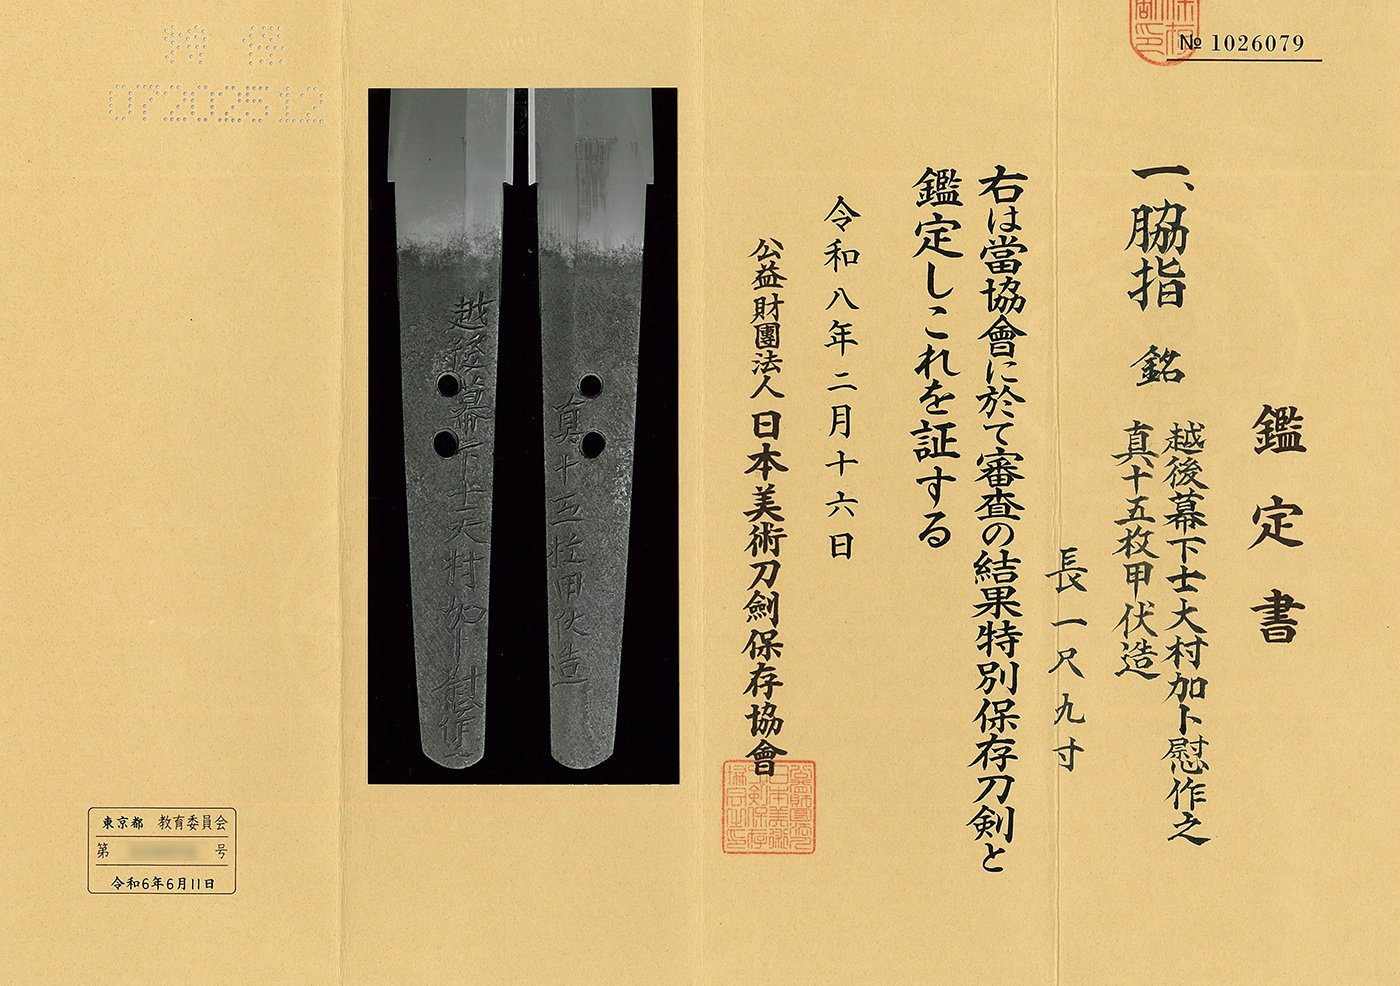 № 1026079
鑑定書
一、脇指 銘 越後幕下士大村加卜慰作之
真十五枚甲伏造
長一尺九寸
右は當協會に於て審査の結果特別保存刀剣と
鑑定しこれを証する
令和八年二月十六日
公益財團法人 日本美術刀劍保存協會
越後幕下士大村加卜慰作之
真十五枚甲伏造
0720202512
東京都 教育委員会
第 号
令和6年6月11日